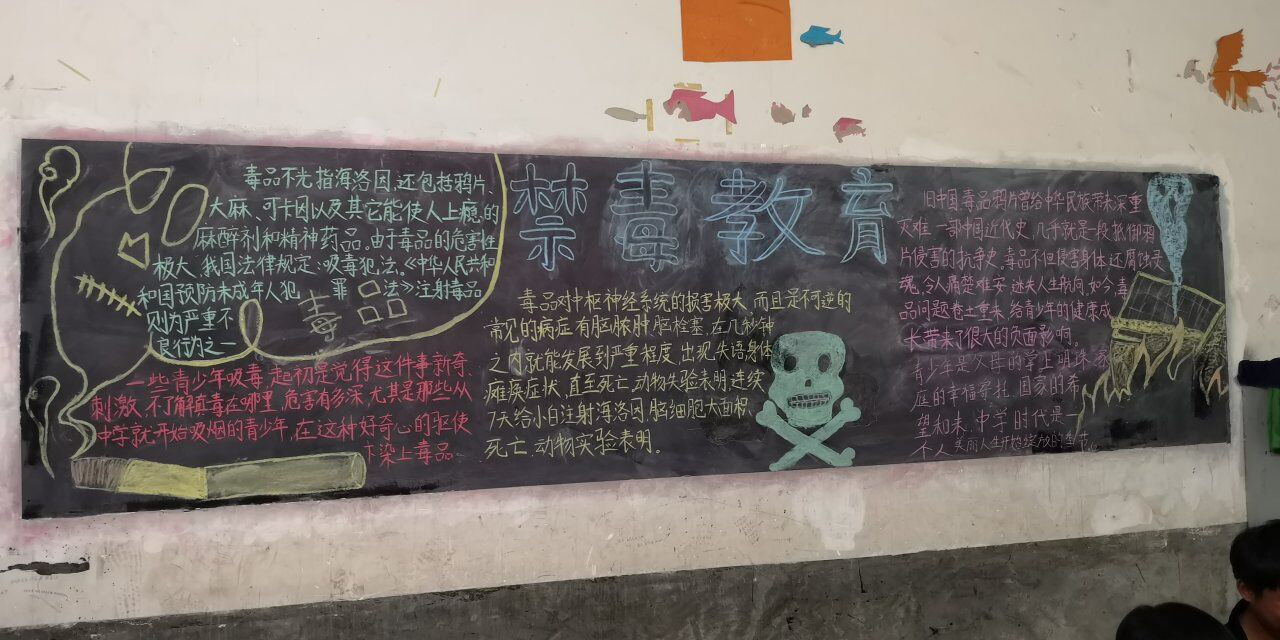 禁毒教育
毒品不光指海洛因,还包括鸦片、
大麻、可卡因以及其它能使人上瘾的
麻醉剂和精神药品。由于毒品的危害性
极大、我国法律规定:吸毒犯法。《中华人民共和
和国预防未成年人犯罪法》注射毒品
则为严重不
良行为之一
毒品
一些青少年吸毒,起初是觉得这件事新奇、
刺激、不了解真毒在哪里,危害有多深,尤其是那些从
中学就开始吸烟的青少年,在这种好奇心的驱使
下染上毒品。
毒品对中枢神经系统的损害极大,而且是不可逆的
常见的病症有脑脓肿,脑栓塞,在几秒钟
之内就能发展到严重程度,出现失语身体
瘫痪症状,直至死亡,动物失验表明,连续
7天给小白注射海洛因,脑细胞大面积
死亡,动物实验表明。
旧中国,毒品鸦片曾给中华民族带来深重
灾难,一部中国近代史,几乎就是一段抵御鸦
片侵害的抗争史。毒品不但损害身体,还腐蚀灵
魂,令人痛楚难安,迷失人生航向,如今,毒
品问题卷土重来,给青少年的健康成
长带来了很大的负面影响。
青少年是父母的掌上明珠,家
庭的幸福寄托,国家的希
望和未、中学时代是一
个人美丽人生开始绽放的